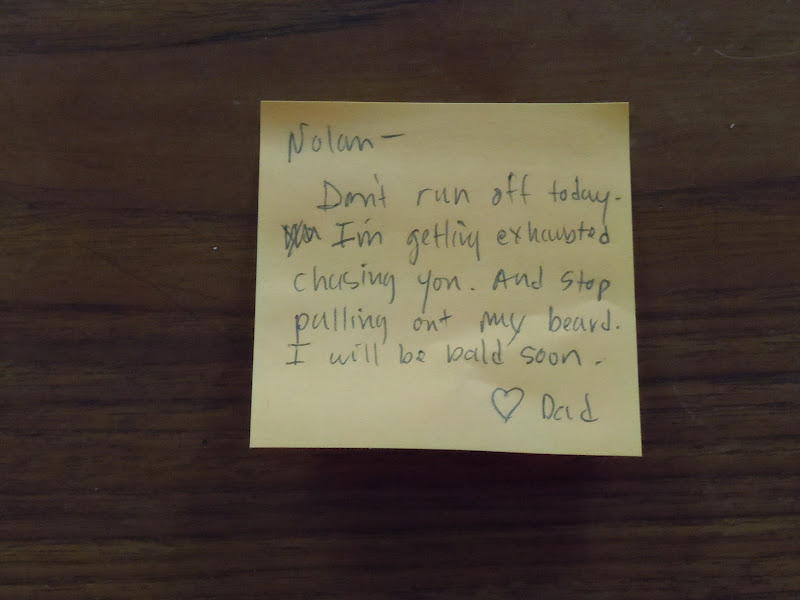 Nolan—
Don't run off today.
I'm getting exhausted
chasing you. And stop
pulling out my beard.
I will be bald soon.
♡ Dad